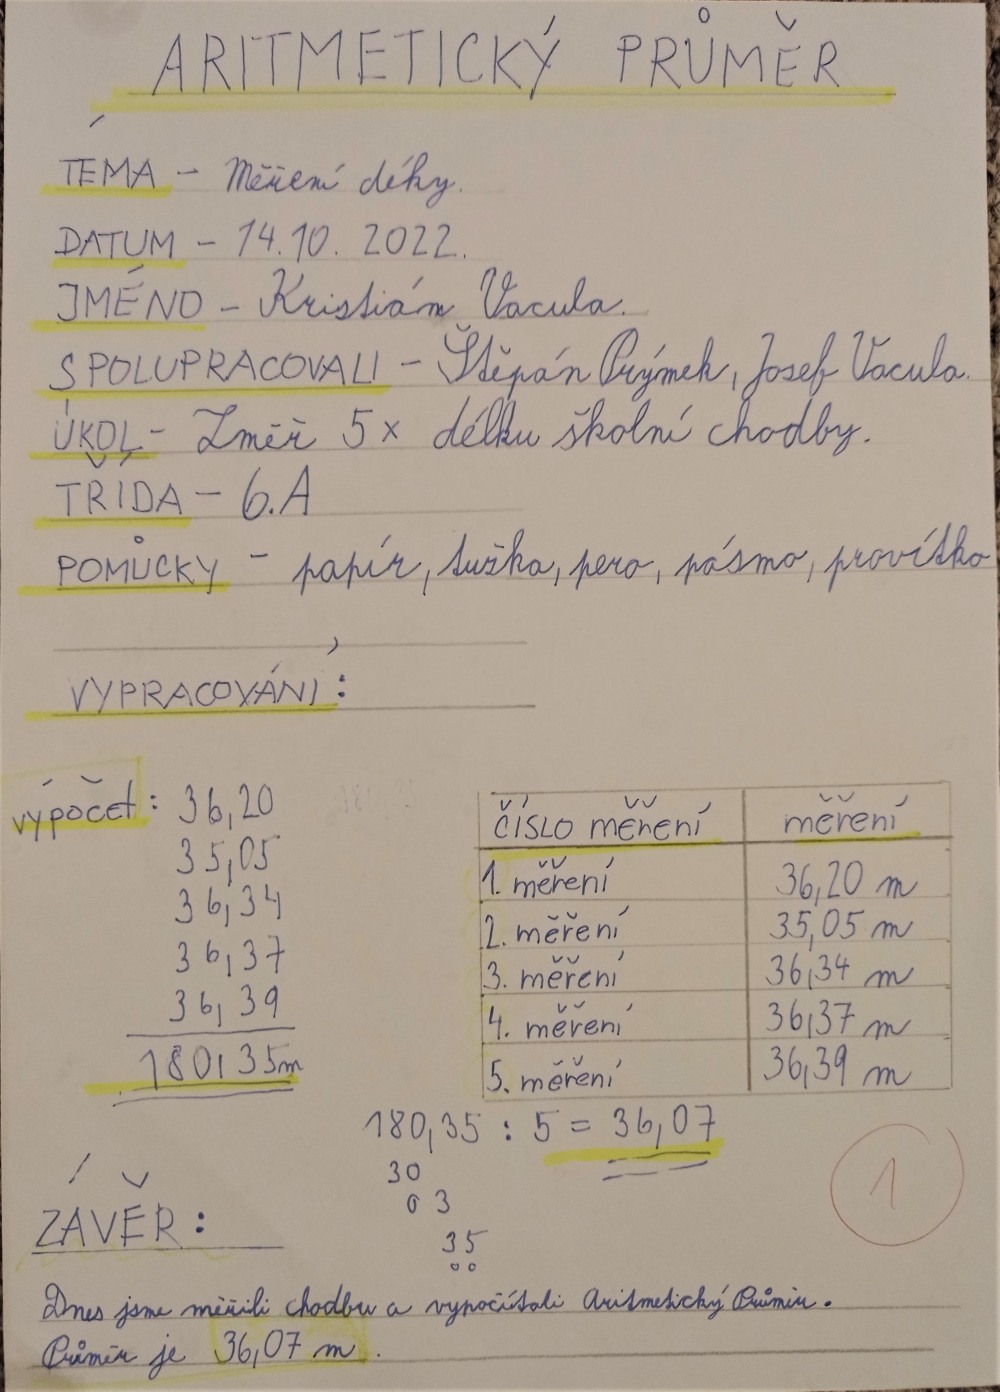 ARITMETICKÝ PRŮMĚR
TÉMA - Měření déky.
DATUM - 14.10. 2022.
JMÉNO - Kristián Vacula.
SPOLUPRACOVALI - Štěpán Prýmek, Josef Vacula.
ÚKOL - Změř 5x délku školní chodby.
TŘÍDA - 6.A
POMŮCKY - papír, tužka, pero, pásmo, provítko
VYPRACOVÁNÍ:
výpočet: 36,20
35,05
36,34
36,37
36,39
180,35m
ČÍSLO MĚŘENÍ měření
1. měření 36,20 m
2. měření 35,05 m
3. měření 36,34 m
4. měření 36,37 m
5. měření 36,39 m
180,35 : 5 = 36,07
30
0 3
35
00
1
ZÁVĚR:
Dnes jsme měřili chodbu a vypočítali Aritmetický Průměr.
Průměr je 36,07 m.